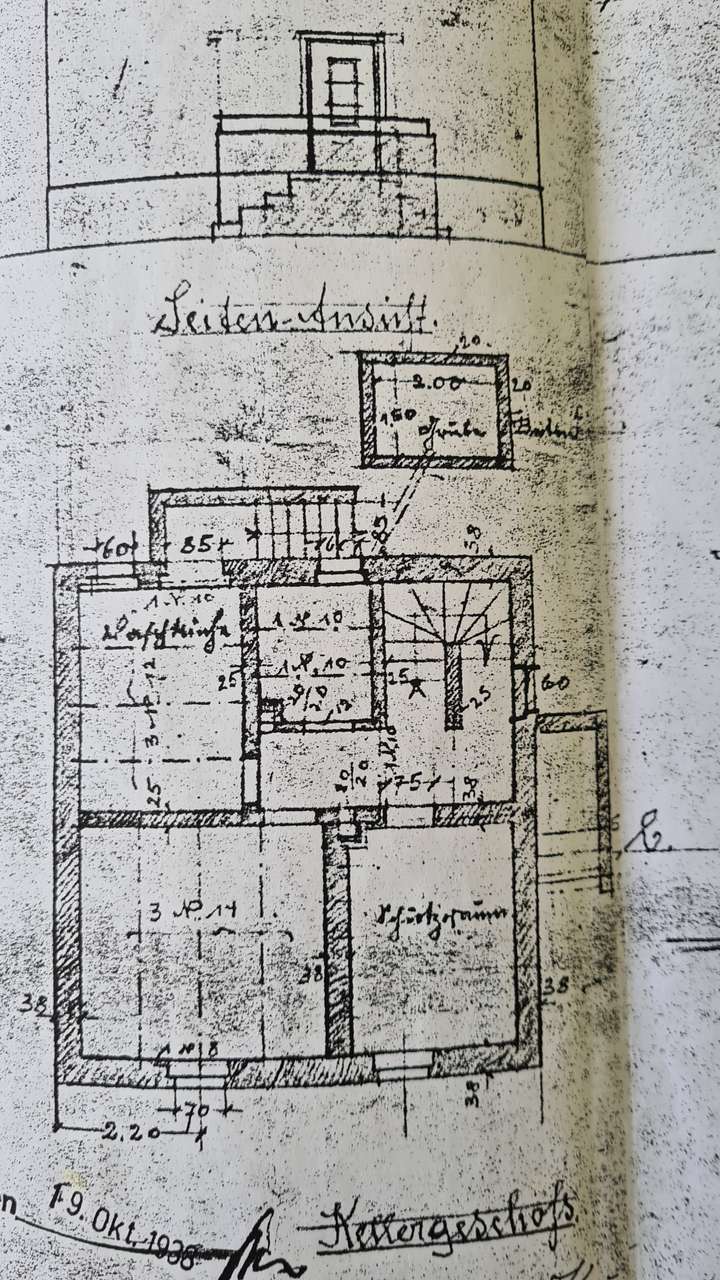 Seiten-Ansicht.
20
2.00
20
1,50
Grube
60
85
85
38
1 N 10
Waschküche
1 N 10
1 N 10
25
25
25
60
3 N 12
12
1 N 10
20
20
75
38
25
3 N 14
Schutzraum
38
38
38
1 N 8
70
38
2.20
19. Okt. 1938
Kellergeschoß